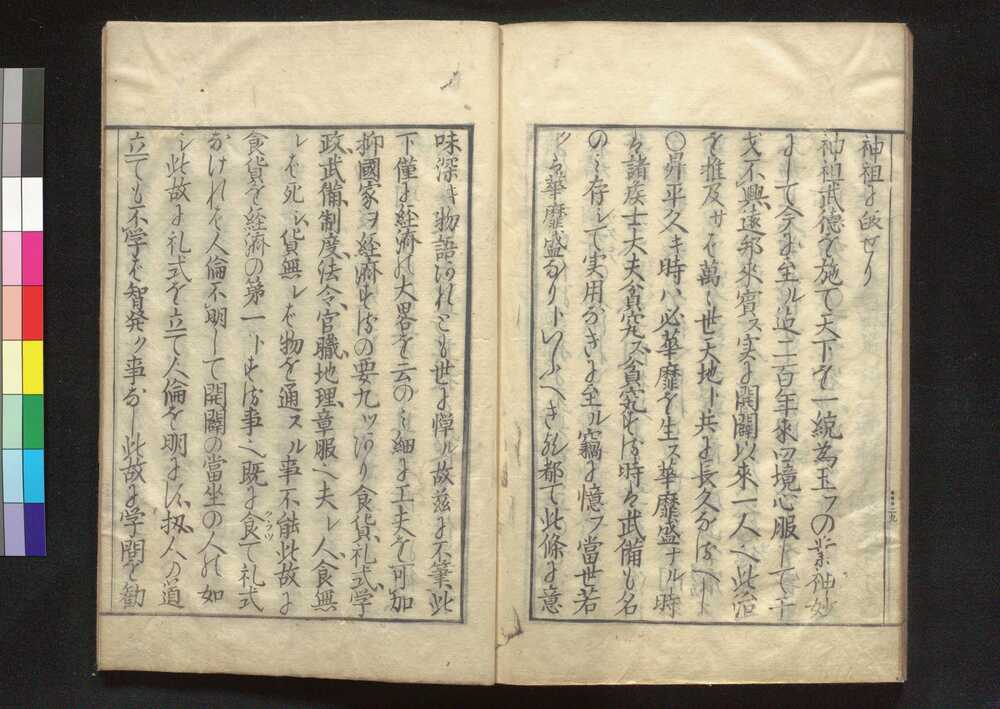 神祖に始せり
神祖武徳を施て天下を一統為玉フの業神妙
にして今に至ル迄二百年來四境心服して干
戈不興遠邦來賓ス実に開闢以来一人ヘ此治
を推及サは萬々世天地ト共に長久なるヘし
〇昇平久キ時ハ必華靡を生ス華靡盛ナル時
ハ諸矦士大夫貧究ス貧究する時ハ武備も名
のミ存シて実用なきに至ル竊に憶フ當世若
クハ華靡盛なりトいふへき歟都て此條に意
味深キ物語あれとも世に憚ル故茲に不筆此
下僅に経済の大畧を云のミ細に工夫を可加
抑國家ヲ経済するの要九ツあり食貨礼式学
政武備制度法令官職地理章服ヘ夫レ人食無
レは死シ貨無レは物を通スル事不能此故に
食貨を経済の第一トする事ヘ既に食て礼式
なけれは人倫不明して開闢の當坐の人の如
シ此故に礼式を立て人倫を明にす扨人の道
立ても不学は智発ク事なし此故に学問を勧
クラツ